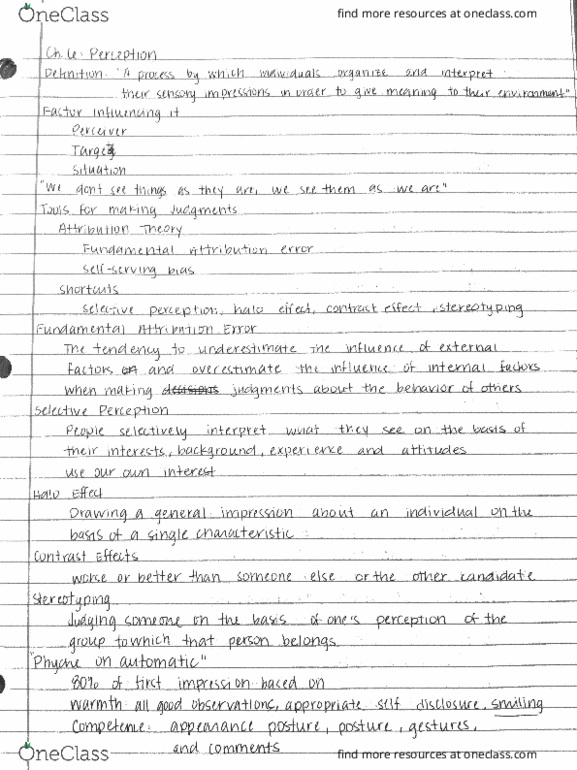 OneClass
find more resources at oneclass.com
Ch. 6: Perception
Definition: "A process by which individuals organize and interpret
their sensory impressions in order to give meaning to their environment"
Factor influencing it
Perceiver
Target
Situation
"We dont see things as they are, we see them as we are"
Tools for making judgments
Attribution Theory
Fundamental Attribution error
self-serving bias
shortcuts
selective perception, halo effect, contrast effect, stereotyping
Fundamental Attribution Error
The tendency to underestimate the influence of external
factors and overestimate the influence of internal factors
when making decisions judgments about the behavior of others
Selective Perception
People selectively interpret what they see on the basis of
their interests, background, experience and attitudes
use our own interest
Halo Effect
Drawing a general impression about an individual on the
basis of a single characteristic
Contrast Effects
worse or better than someone else or the other candidate
Stereotyping
Judging someone on the basis of one's perception of the
group to which that person belongs
"Phyche on automatic"
80% of first impression based on
warmth all good observations, appropriate self disclosure, smiling
Competence: appearance posture, posture, gestures,
and comments
OneClass
find more resources at oneclass.com